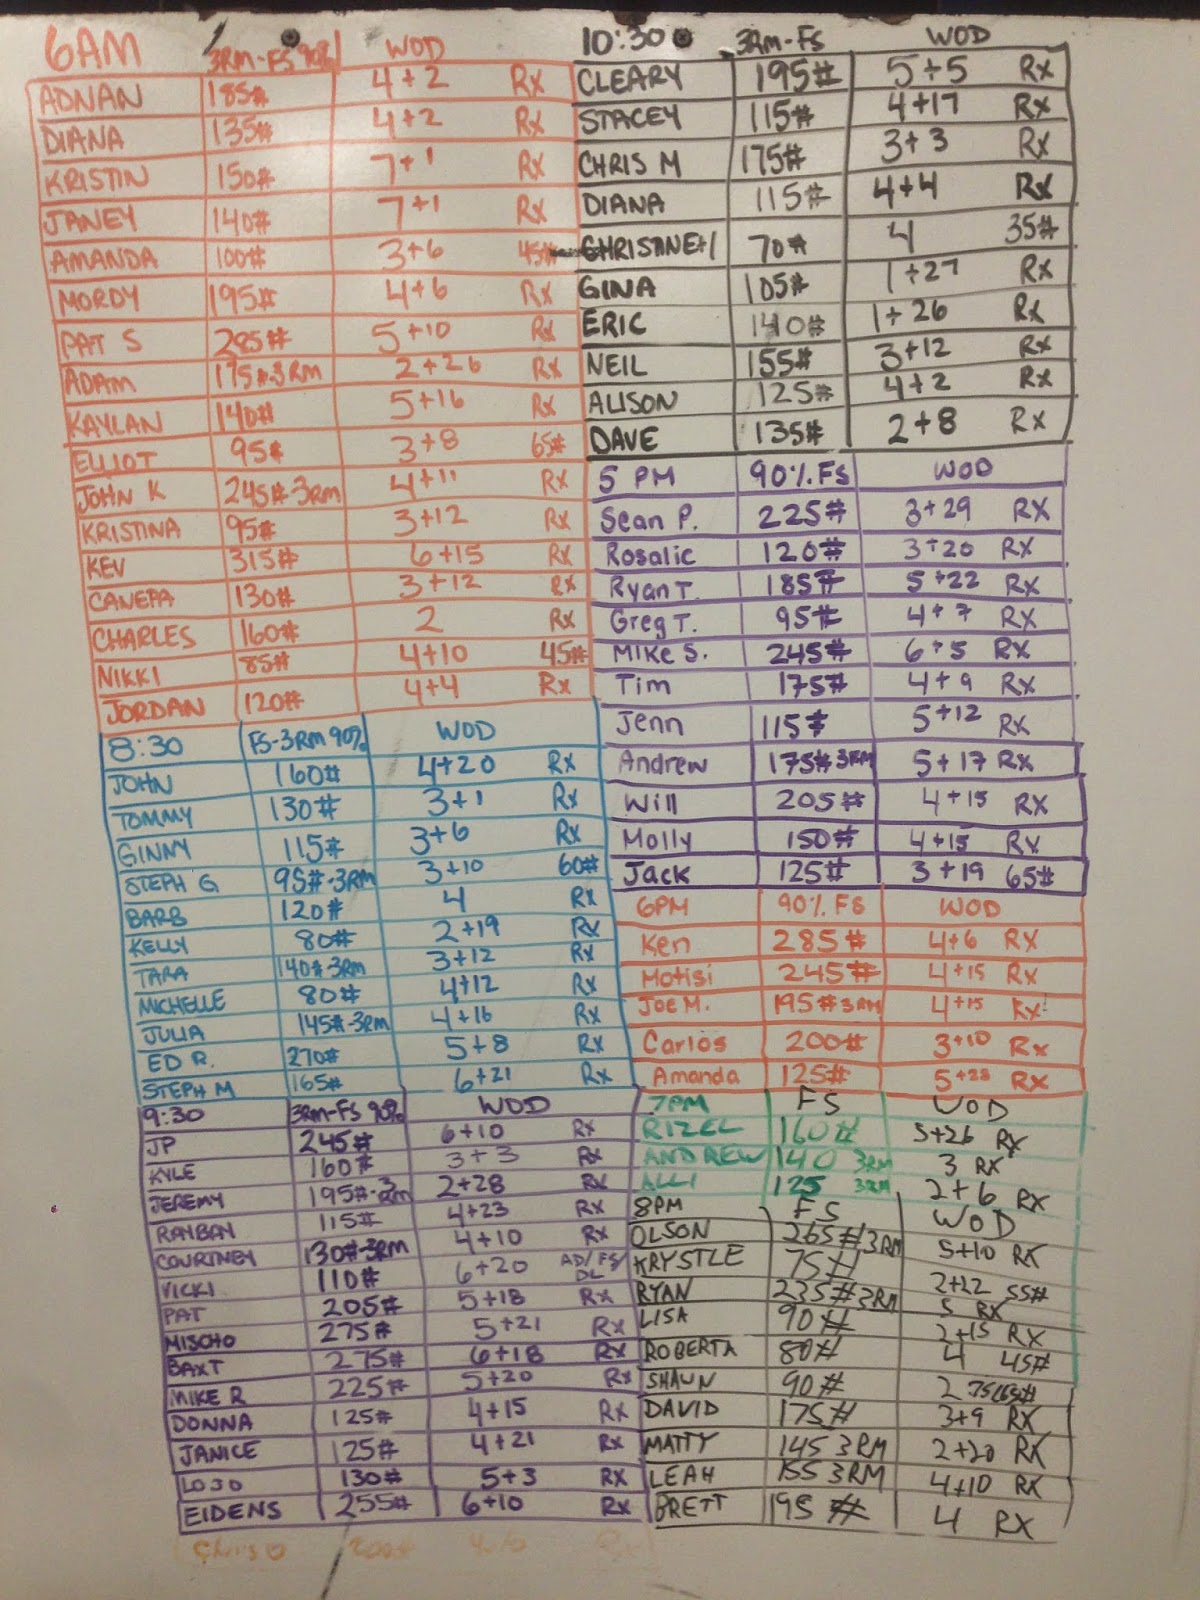 6AM 3RM-FS 90% WOD
ADNAN 185# 4+2 Rx
DIANA 135# 4+2 Rx
KRISTIN 150# 7+1 Rx
JANEY 140# 7+1 Rx
AMANDA 100# 3+6 45#
MORDY 195# 4+6 Rx
PAT S 285# 5+10 Rx
ADAM 175#-3RM 2+26 Rx
KAYLAN 140# 5+16 Rx
ELLIOT 95# 3+8 65#
JOHN K 245#-3RM 4+11 Rx
KRISTINA 95# 3+12 Rx
KEV 315# 6+15 Rx
CANEPA 130# 3+12 Rx
CHARLES 160# 2 Rx
NIKKI 85# 4+10 45#
JORDAN 120# 4+4 Rx
8:30 FS-3RM 90% WOD
JOHN 160# 4+20 Rx
TOMMY 130# 3+1 Rx
GINNY 115# 3+6 Rx
STEPH G 95#-3RM 3+10 60#
BARB 120# 4 Rx
KELLY 80# 2+19 Rx
TARA 140#-3RM 3+12 Rx
MICHELLE 80# 4+12 Rx
JULIA 145#-3RM 4+16 Rx
ED R. 270# 5+8 Rx
STEPH M 165# 6+21 Rx
9:30 3RM-FS 90% WOD
JP 245# 6+10 Rx
KYLE 160# 3+3 Rx
JEREMY 195#-3RM 2+28 Rx
RAYBAY 115# 4+23 Rx
COURTNEY 130#-3RM 4+10 Rx
VICKI 110# 6+20 AD/FS/DL
PAT 205# 5+18 Rx
MISCHO 275# 5+21 Rx
BAXT 275# 6+18 Rx
MIKE R 225# 5+20 Rx
DONNA 125# 4+15 Rx
JANICE 125# 4+21 Rx
LOJO 130# 5+3 Rx
EIDENS 255# 6+10 Rx
Chris O
10:30 3RM-FS WOD
CLEARY 195# 5+5 Rx
STACEY 115# 4+17 Rx
CHRIS M 175# 3+3 Rx
DIANA 115# 4+4 Rx
CHRISTINE+1 70# 4 35#
GINA 105# 1+27 Rx
ERIC 140# 1+26 Rx
NEIL 155# 3+12 Rx
ALISON 125# 4+2 Rx
DAVE 135# 2+8 Rx
5 PM 90% FS WOD
Sean P. 225# 3+29 RX
Rosalie 120# 3+20 RX
Ryan T. 185# 5+22 RX
Greg T. 95# 4+7 RX
Mike S. 245# 6+5 RX
Tim 175# 4+9 RX
Jenn 115# 5+12 RX
Andrew 175#3RM 5+17 RX
Will 205# 4+15 RX
Molly 150# 4+15 RX
Jack 125# 3+19 65#
6PM 90% FS WOD
Ken 285# 4+6 RX
Motisi 245# 4+15 RX
Joe M. 195#3RM 4+15 RX
Carlos 200# 3+10 RX
Amanda 125# 5+28 RX
7PM FS WOD
RIZEL 160# 5+26 RX
ANDREW 140 3RM 3 RX
ALLI 125 3RM 2+6 RX
8PM FS WOD
OLSON 265#3RM 5+10 RX
KRYSTLE 75# 2+22 55#
RYAN 235#3RM 5 RX
LISA 90# 2+15 RX
ROBERTA 80# 4 45#
SHAUN 90# 2
DAVID 175# 3+9 RX
MATTY 145 3RM 2+20 RX
LEAH 155 3RM 4+10 RX
BRETT 195# 4 RX